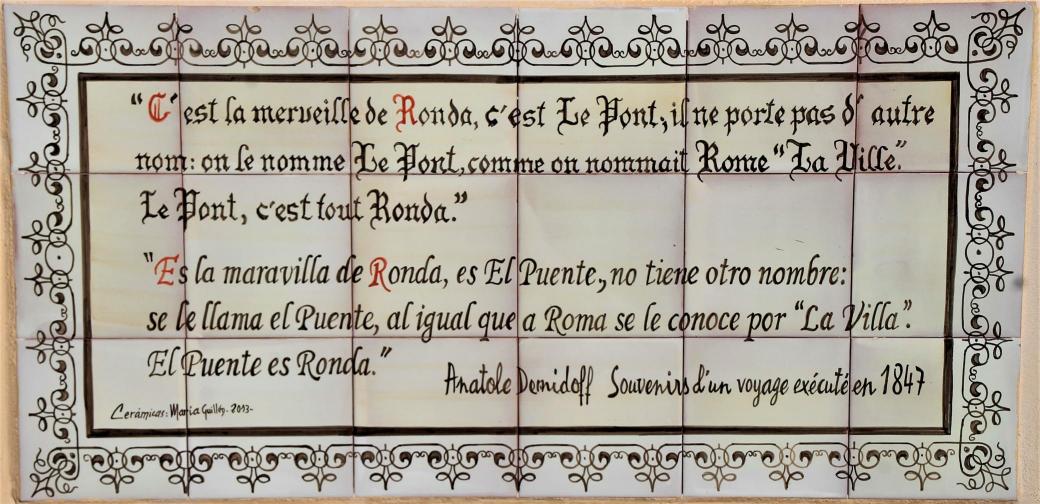 "C'est la merveille de Ronda, c'est Le Pont; il ne porte pas d' autre
nom: on le nomme Le Pont, comme on nommait Rome "La Ville".
Le Pont, c'est tout Ronda."
"Es la maravilla de Ronda, es El Puente, no tiene otro nombre:
se le llama el Puente, al igual que a Roma se le conoce por "La Villa".
El Puente es Ronda."
Anatole Demidoff Souvenirs d'un voyage exécuté en 1847
Cerámicas: Maria Guillén. 2013-